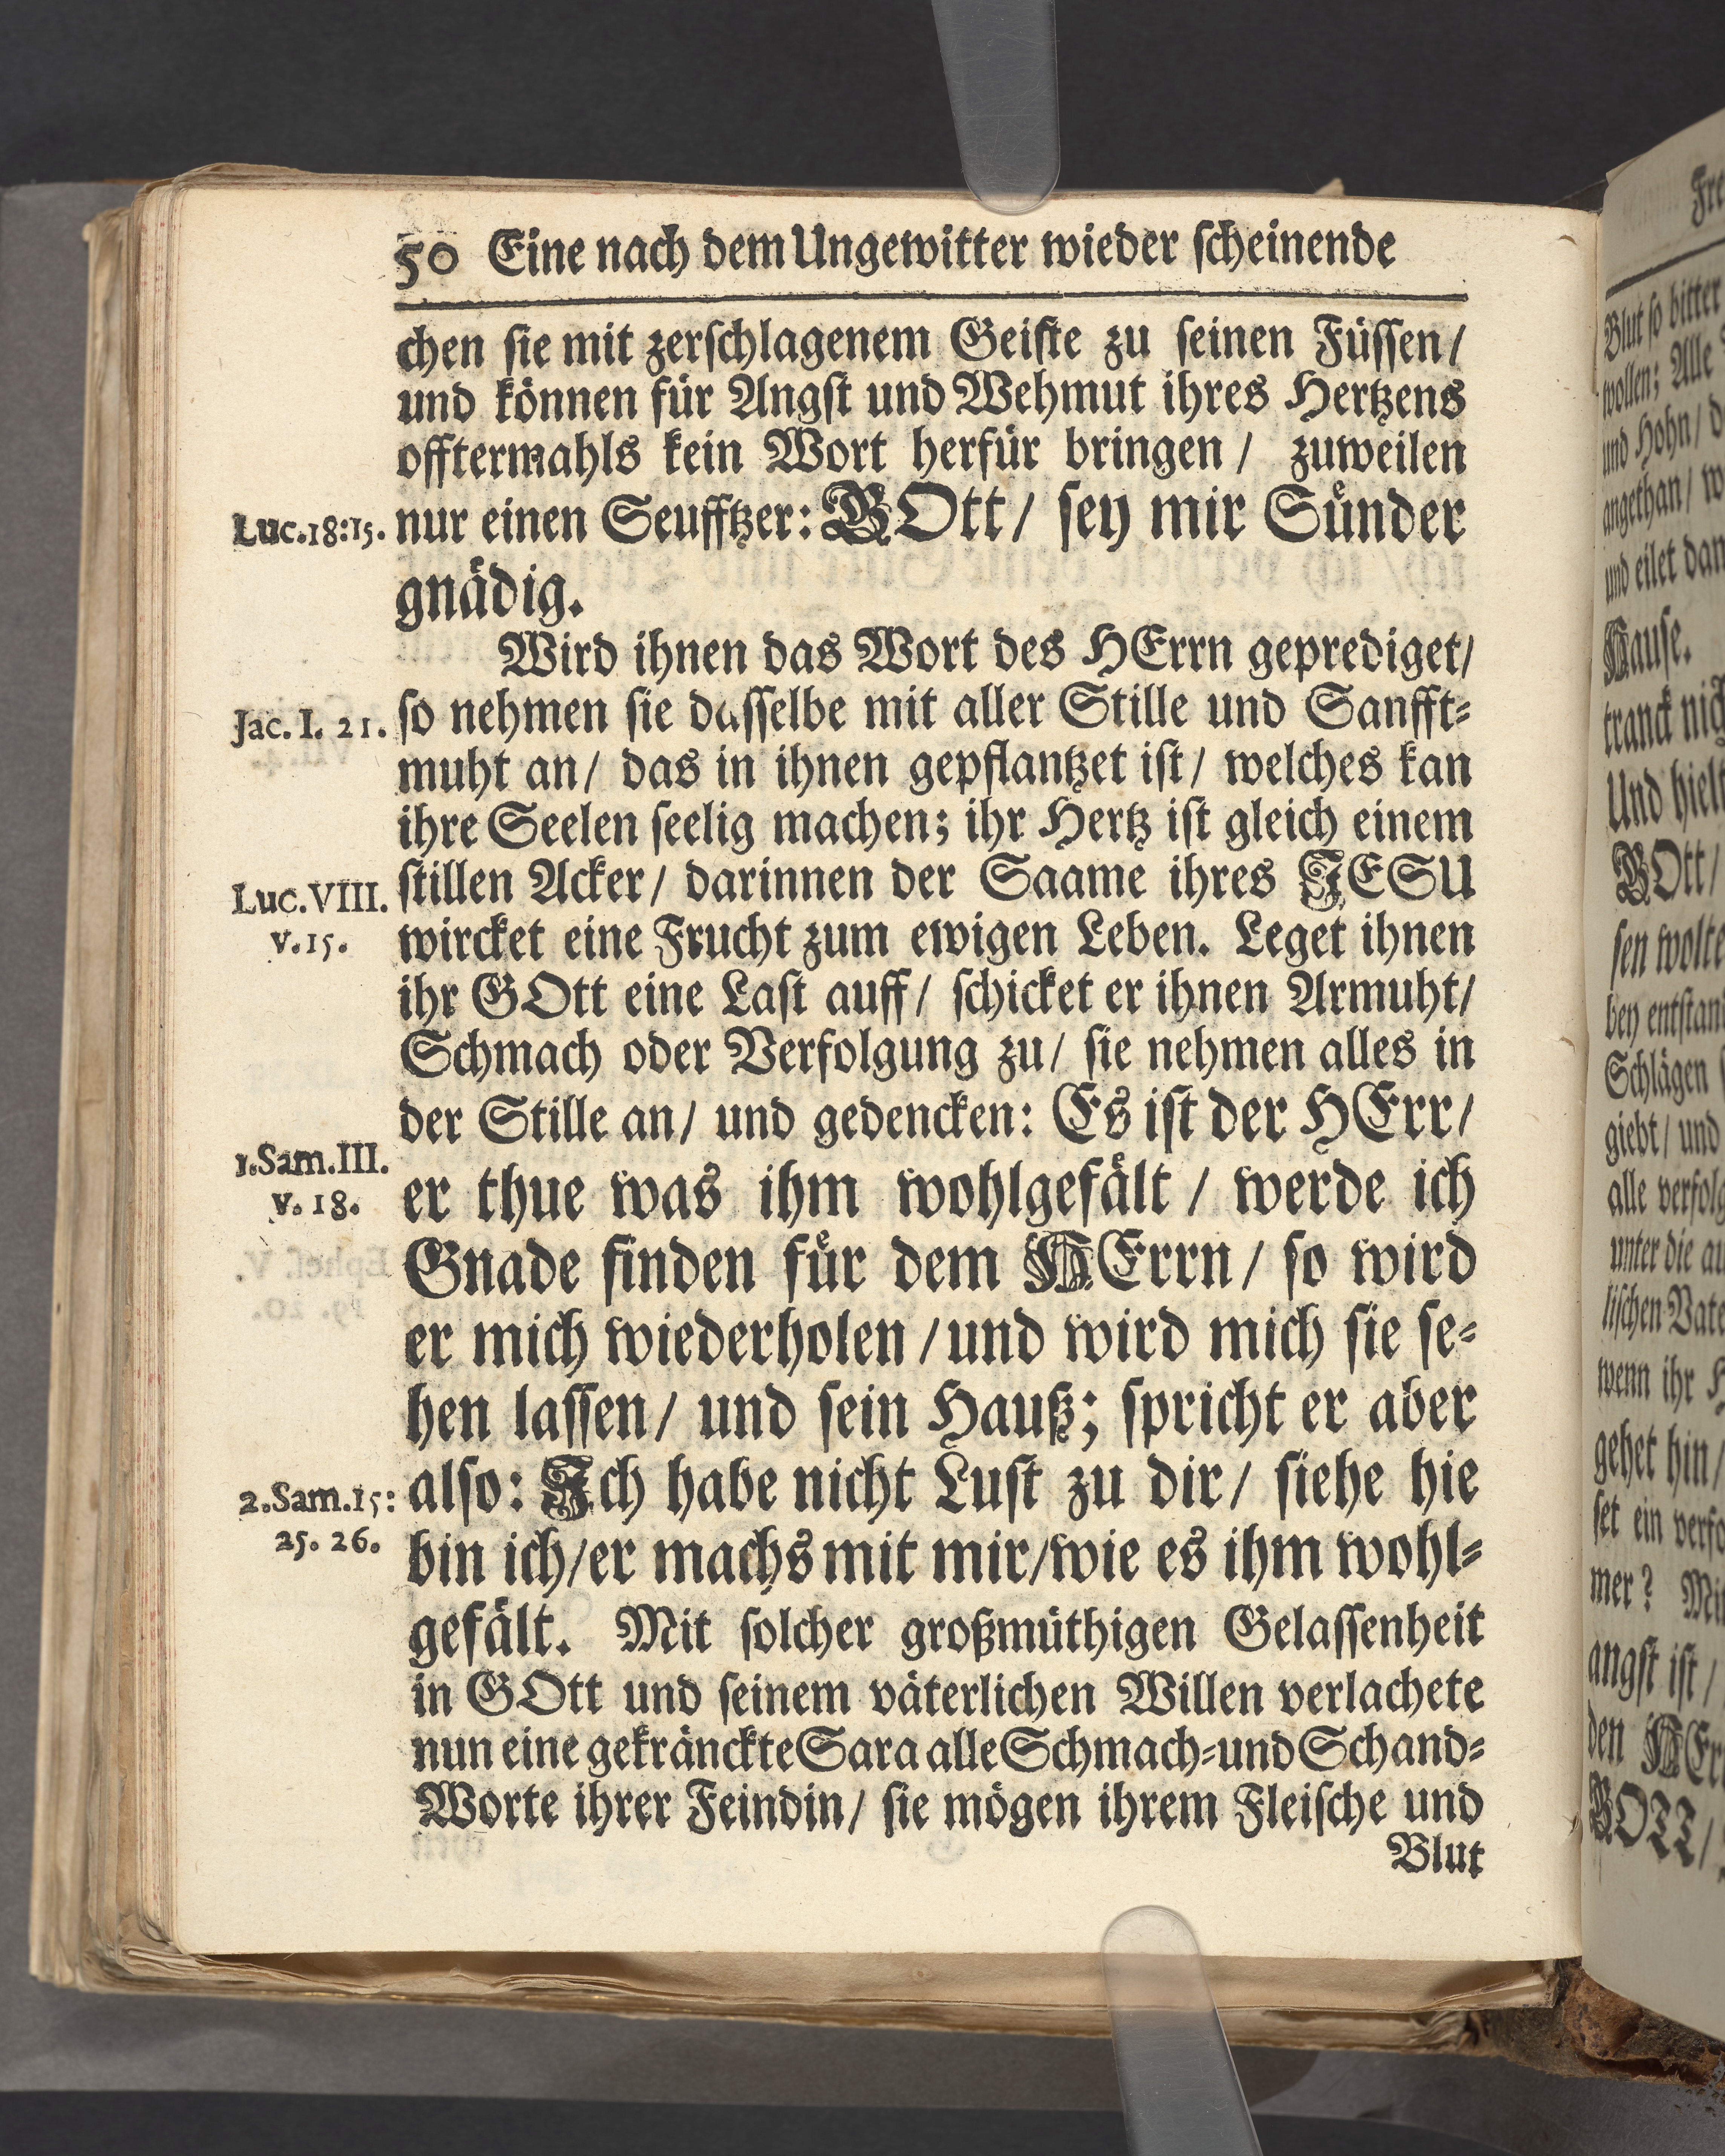 50 Eine nach dem Ungewitter wieder ſcheinende
chen ſie mit zerſchlagenem Geiſte zu ſeinen Füſſen/
und können für Angſt und Wehmut ihres Hertzens
offtermahls kein Wort herfür bringen / zuweilen
Luc.18:15. nur einen Seufftzer: GOtt/ ſey mir Sünder
gnädig.
Wird ihnen das Wort des HErrn geprediget/
Jac. I. 21. ſo nehmen ſie daſſelbe mit aller Stille und Sanfft⸗
muht an/ das in ihnen gepflantzet iſt/ welches kan
ihre Seelen ſeelig machen; ihr Hertz iſt gleich einem
Luc.VIII. ſtillen Acker/ darinnen der Saame ihres JESU
v.15. wircket eine Frucht zum ewigen Leben. Leget ihnen
ihr GOtt eine Laſt auff/ ſchicket er ihnen Armuht/
Schmach oder Verfolgung zu/ ſie nehmen alles in
der Stille an/ und gedencken: Es iſt der HErr/
1.Sam.III.
v. 18. er thue was ihm wohlgefält / werde ich
Gnade finden für dem HErrn/ ſo wird
er mich wiederholen /und wird mich ſie ſe⸗
hen laſſen/ und ſein Hauß; ſpricht er aber
2.Sam.15: alſo: Ich habe nicht Luſt zu dir/ ſiehe hie
25. 26. bin ich/er machs mit mir/wie es ihm wohl⸗
gefält. Mit ſolcher großmüthigen Gelaſſenheit
in GOtt und ſeinem väterlichen Willen verlachete
nun eine gekränckte Sara alle Schmach⸗und Schand⸗
Worte ihrer Feindin/ ſie mögen ihrem Fleiſche und
Blut
Blut ſo bitter
wollen; Alle
und Hohn/
angethan/
und eilet
Hauſe.
tranck
Und
GOtt/
ſen wolte
bey
Schlägen
giebt/ und
alle
unter die
liſchen
wenn ihr
gehet hin/
ſet ein
mer?
angſt iſt /
den
GOTT/